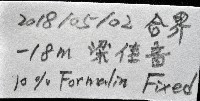 2018/05/02 合界
-18m 梁佳音
10% Formalin Fixed